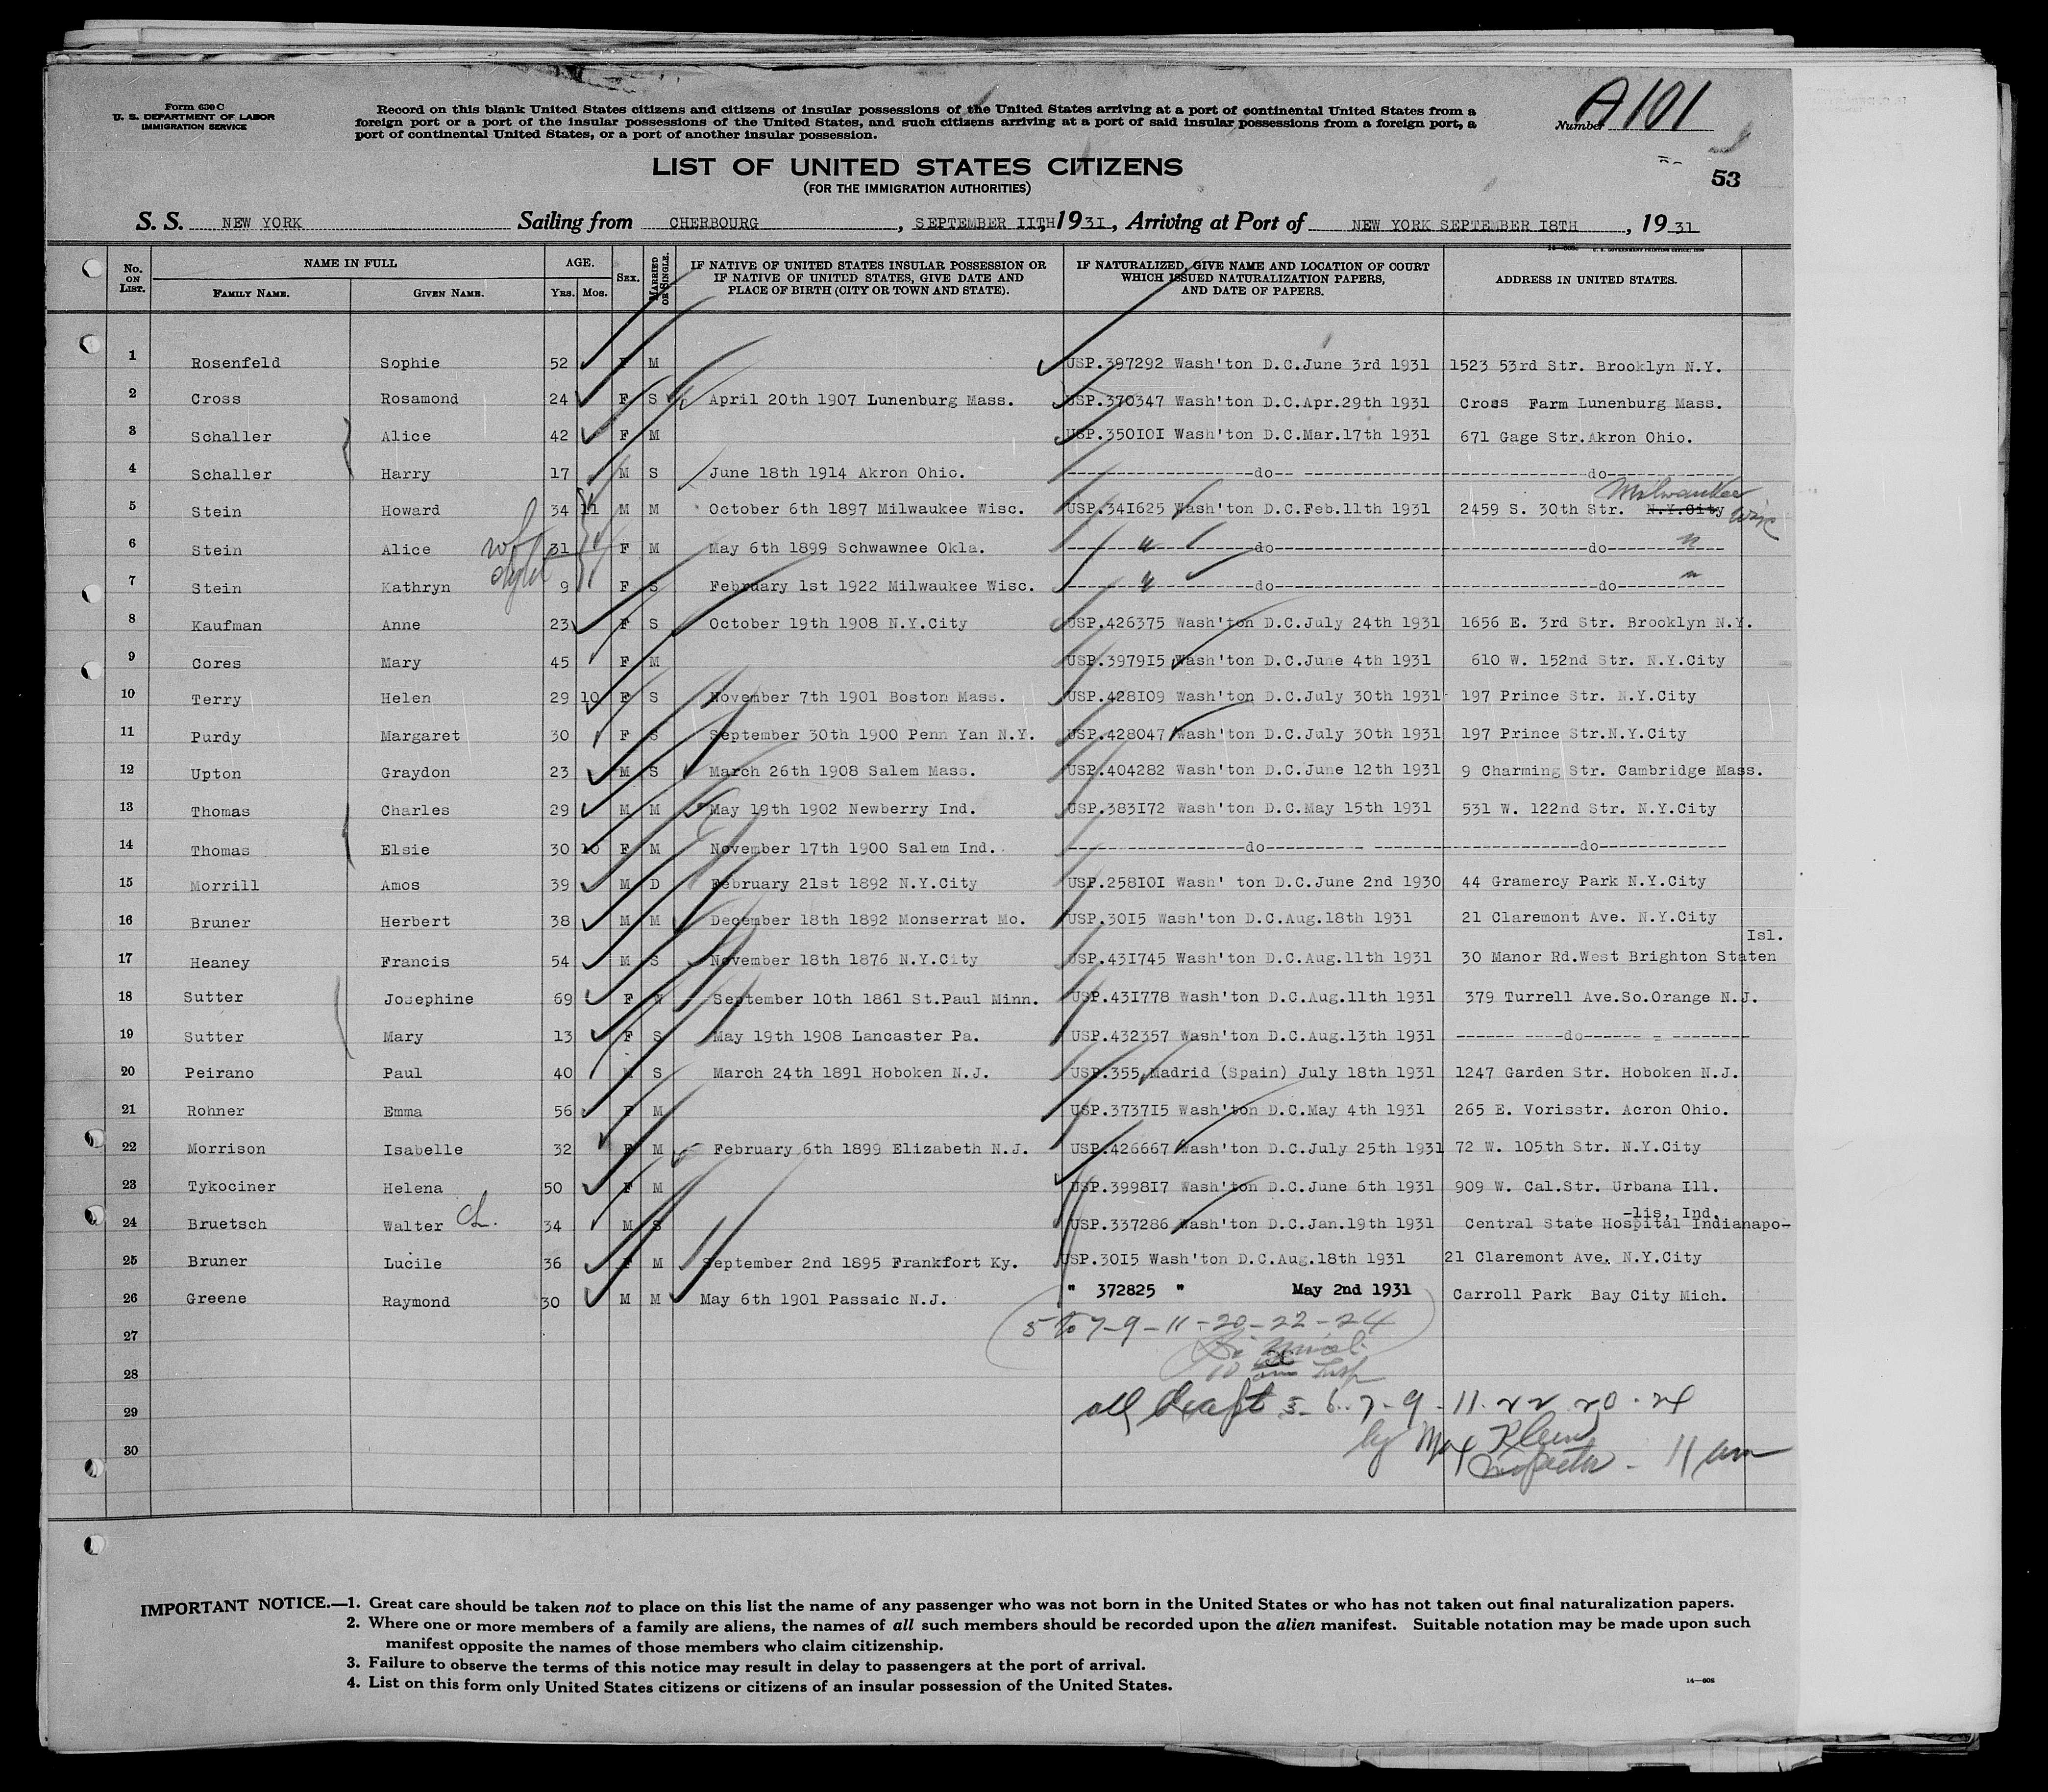 Form 630 C
U. S. DEPARTMENT OF LABOR
IMMIGRATION SERVICE
Record on this blank United States citizens and citizens of insular possessions of the United States arriving at a port of continental United States from a
foreign port or a port of the insular possessions of the United States, and such citizens arriving at a port of said insular possessions from a foreign port, a
port of continental United States, or a port of another insular possession.
Number A101
LIST OF UNITED STATES CITIZENS
(FOR THE IMMIGRATION AUTHORITIES)
53
S. S. NEW YORK Sailing from CHERBOURG, SEPTEMBER IITH, 1931, Arriving at Port of NEW YORK SEPTEMBER I8TH, 1931
No. ON LIST. NAME IN FULL FAMILY NAME. GIVEN NAME. AGE. YRS. MOS. SEX. MARRIED OR SINGLE. IF NATIVE OF UNITED STATES INSULAR POSSESSION OR IF NATIVE OF UNITED STATES, GIVE DATE AND PLACE OF BIRTH (CITY OR TOWN AND STATE). IF NATURALIZED, GIVE NAME AND LOCATION OF COURT WHICH ISSUED NATURALIZATION PAPERS, AND DATE OF PAPERS. ADDRESS IN UNITED STATES.
1 Rosenfeld Sophie 52 F M USP.397292 Wash'ton D.C.June 3rd 1931 1523 53rd Str. Brooklyn N.Y.
2 Cross Rosamond 24 F S April 20th 1907 Lunenburg Mass. USP.370347 Wash'ton D.C.Apr.29th 1931 Cross Farm Lunenburg Mass.
3 Schaller Alice 42 F M USP.350I0I Wash'ton D.C.Mar.17th 1931 671 Gage Str.Akron Ohio.
4 Schaller Harry 17 M S June 18th 1914 Akron Ohio. ---do--- ---do---
5 Stein Howard 34 11 M M October 6th 1897 Milwaukee Wisc. USP.34I625 Wash'ton D.C.Feb.11th 1931 2459 S. 30th Str. N.Y.City Milwaukee Wisc
6 Stein Alice wf 31 F M May 6th 1899 Schwawnee Okla. ---"---do--- ---do---"---
7 Stein Kathryn dght 9 F S February 1st 1922 Milwaukee Wisc. ---"---do--- ---do---"---
8 Kaufman Anne 23 F S October 19th 1908 N.Y.City USP.426375 Wash'ton D.C.July 24th 1931 1656 E. 3rd Str. Brooklyn N.Y.
9 Cores Mary 45 F M USP.3979I5 Wash'ton D.C.June 4th 1931 610 W. 152nd Str. N.Y.City
10 Terry Helen 29 10 F S November 7th 1901 Boston Mass. USP.428I09 Wash'ton D.C.July 30th 1931 197 Prince Str. N.Y.City
11 Purdy Margaret 30 F S September 30th 1900 Penn Yan N.Y. USP.428047 Wash'ton D.C.July 30th 1931 197 Prince Str.N.Y.City
12 Upton Graydon 23 M S March 26th 1908 Salem Mass. USP.404282 Wash'ton D.C.June 12th 1931 9 Charming Str. Cambridge Mass.
13 Thomas Charles 29 M M May 19th 1902 Newberry Ind. USP.383I72 Wash'ton D.C.May 15th 1931 531 W. 122nd Str. N.Y.City
14 Thomas Elsie 30 10 F M November 17th 1900 Salem Ind. ---do--- ---do---
15 Morrill Amos 39 M D February 21st 1892 N.Y.City USP.258I0I Wash' ton D.C.June 2nd 1930 44 Gramercy Park N.Y.City
16 Bruner Herbert 38 M M December 18th 1892 Monserrat Mo. USP.30I5 Wash'ton D.C.Aug.18th 1931 21 Claremont Ave. N.Y.City
Isl.
17 Heaney Francis 54 M S November 18th 1876 N.Y.City USP.43I745 Wash'ton D.C.Aug.11th 1931 30 Manor Rd.West Brighton Staten
18 Sutter Josephine 69 F W September 10th 1861 St.Paul Minn. USP.43I778 Wash'ton D.C.Aug.11th 1931 379 Turrell Ave.So.Orange N.J.
19 Sutter Mary 13 F S May 19th 1908 Lancaster Pa. USP.432357 Wash'ton D.C.Aug.13th 1931 ---do---
20 Peirano Paul 40 M S March 24th 1891 Hoboken N.J. USP.355 Madrid (Spain) July 18th 1931 1247 Garden Str. Hoboken N.J.
21 Rohner Emma 56 F M USP.3737I5 Wash'ton D.C.May 4th 1931 265 E. Vorisstr. Acron Ohio.
22 Morrison Isabelle 32 F M February 6th 1899 Elizabeth N.J. USP.426667 Wash'ton D.C.July 25th 1931 72 W. 105th Str. N.Y.City
23 Tykociner Helena 50 F M USP.3998I7 Wash'ton D.C.June 6th 1931 909 W. Cal.Str. Urbana Ill.
-lis, Ind.
24 Bruetsch Walter L. 34 M S USP.337286 Wash'ton D.C.Jan.19th 1931 Central State Hospital Indianapo-
25 Bruner Lucile 36 F M September 2nd 1895 Frankfort Ky. USP.30I5 Wash'ton D.C.Aug.18th 1931 21 Claremont Ave. N.Y.City
26 Greene Raymond 30 M M May 6th 1901 Passaic N.J. " 372825 " May 2nd 1931 Carroll Park Bay City Mich.
27 5 to 7-9-11-20-22-24
28
29 all draft 5-6-7-9-11.22.20.24
30 by Max Klein
Inspector - 11 am
IMPORTANT NOTICE.—1. Great care should be taken not to place on this list the name of any passenger who was not born in the United States or who has not taken out final naturalization papers.
2. Where one or more members of a family are aliens, the names of all such members should be recorded upon the alien manifest. Suitable notation may be made upon such
manifest opposite the names of those members who claim citizenship.
3. Failure to observe the terms of this notice may result in delay to passengers at the port of arrival.
4. List on this form only United States citizens or citizens of an insular possession of the United States.